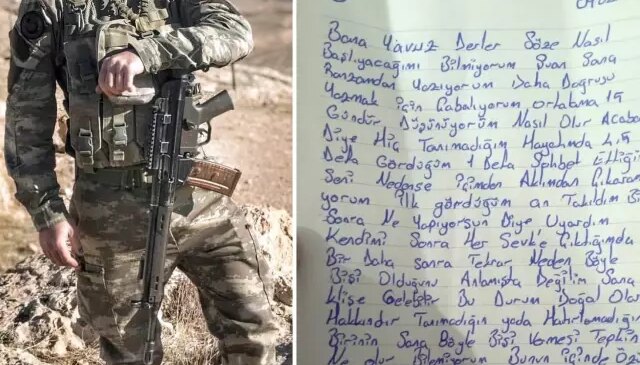 Bana Yavuz Derler Söze Nasıl
Başlıyacağımı Bilmiyorum Şuan Sana
Ranzamdan Yazıyorum Daha Doğrusu
Yazmak için Çabalıyorum ortalama 15
Gündür Düşünüyorum Nasıl Olur Acaba
Diye Hiç Tanımadığım Hayatında 4,5
Defa Gördüğüm 1 Defa Sohbet Ettiğim
Seni Nedense içimden Aklımdan Çıkaramı
yorum ilk gördüğüm an Takıldım
Sonra Ne Yapıyorsun Diye Uyardım
Kendimi Sonra Her Sevk'e Çıktığımda
Bir Daha sonra Tekrar Neden Böyle
Bişi Olduğunu Anlamışta Değilim Sana
klişe Gelebilir Bu Durum Doğal Olar
Hakkındır Tanımadığın yada Hatırlamadığın
Birinin Sana Böyle Bişi Vermesi Tepkin
Ne olur Bilmiyorum Bunun içinde Özü